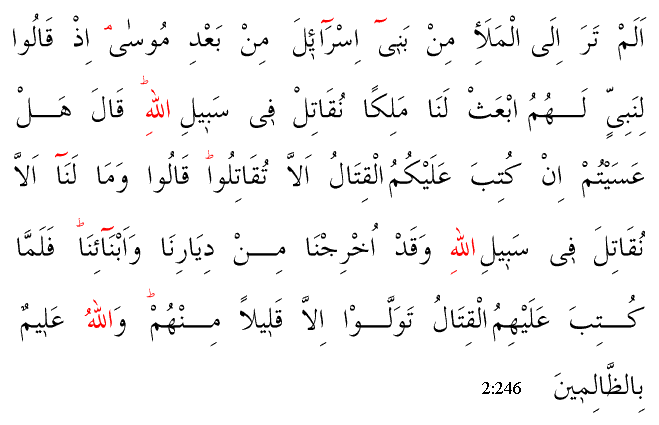 اَلَمْ تَرَ اِلَى الْمَلَأِ مِنْ بَنٖىٓ اِسْرَٓائٖلَ مِنْ بَعْدِ مُوسٰىۘ اِذْ قَالُوا
لِنَبِىٍّ لَـهُمُ ابْعَثْ لَنَا مَلِكًا نُقَاتِلْ فٖى سَبٖيلِ اللّٰهِؕ قَالَ هَـلْ
عَسَيْتُمْ اِنْ كُتِبَ عَلَيْكُمُ الْقِتَالُ اَلاَّ تُقَاتِلُواؕ قَالُوا وَمَا لَنَٓا اَلاَّ
نُقَاتِلَ فٖى سَبٖيلِ اللّٰهِ وَقَدْ اُخْرِجْنَا مِـنْ دِيَارِنَا وَاَبْنَٓائِنَاؕ فَلَمَّا
كُـتِبَ عَلَيْهِمُ الْقِتَالُ تَوَلَّـوْا اِلاَّ قَلٖيلاً مِـنْهُمْؕ وَاللّٰهُ عَلٖيمٌ
بِالظَّالِمٖينَ 2:246